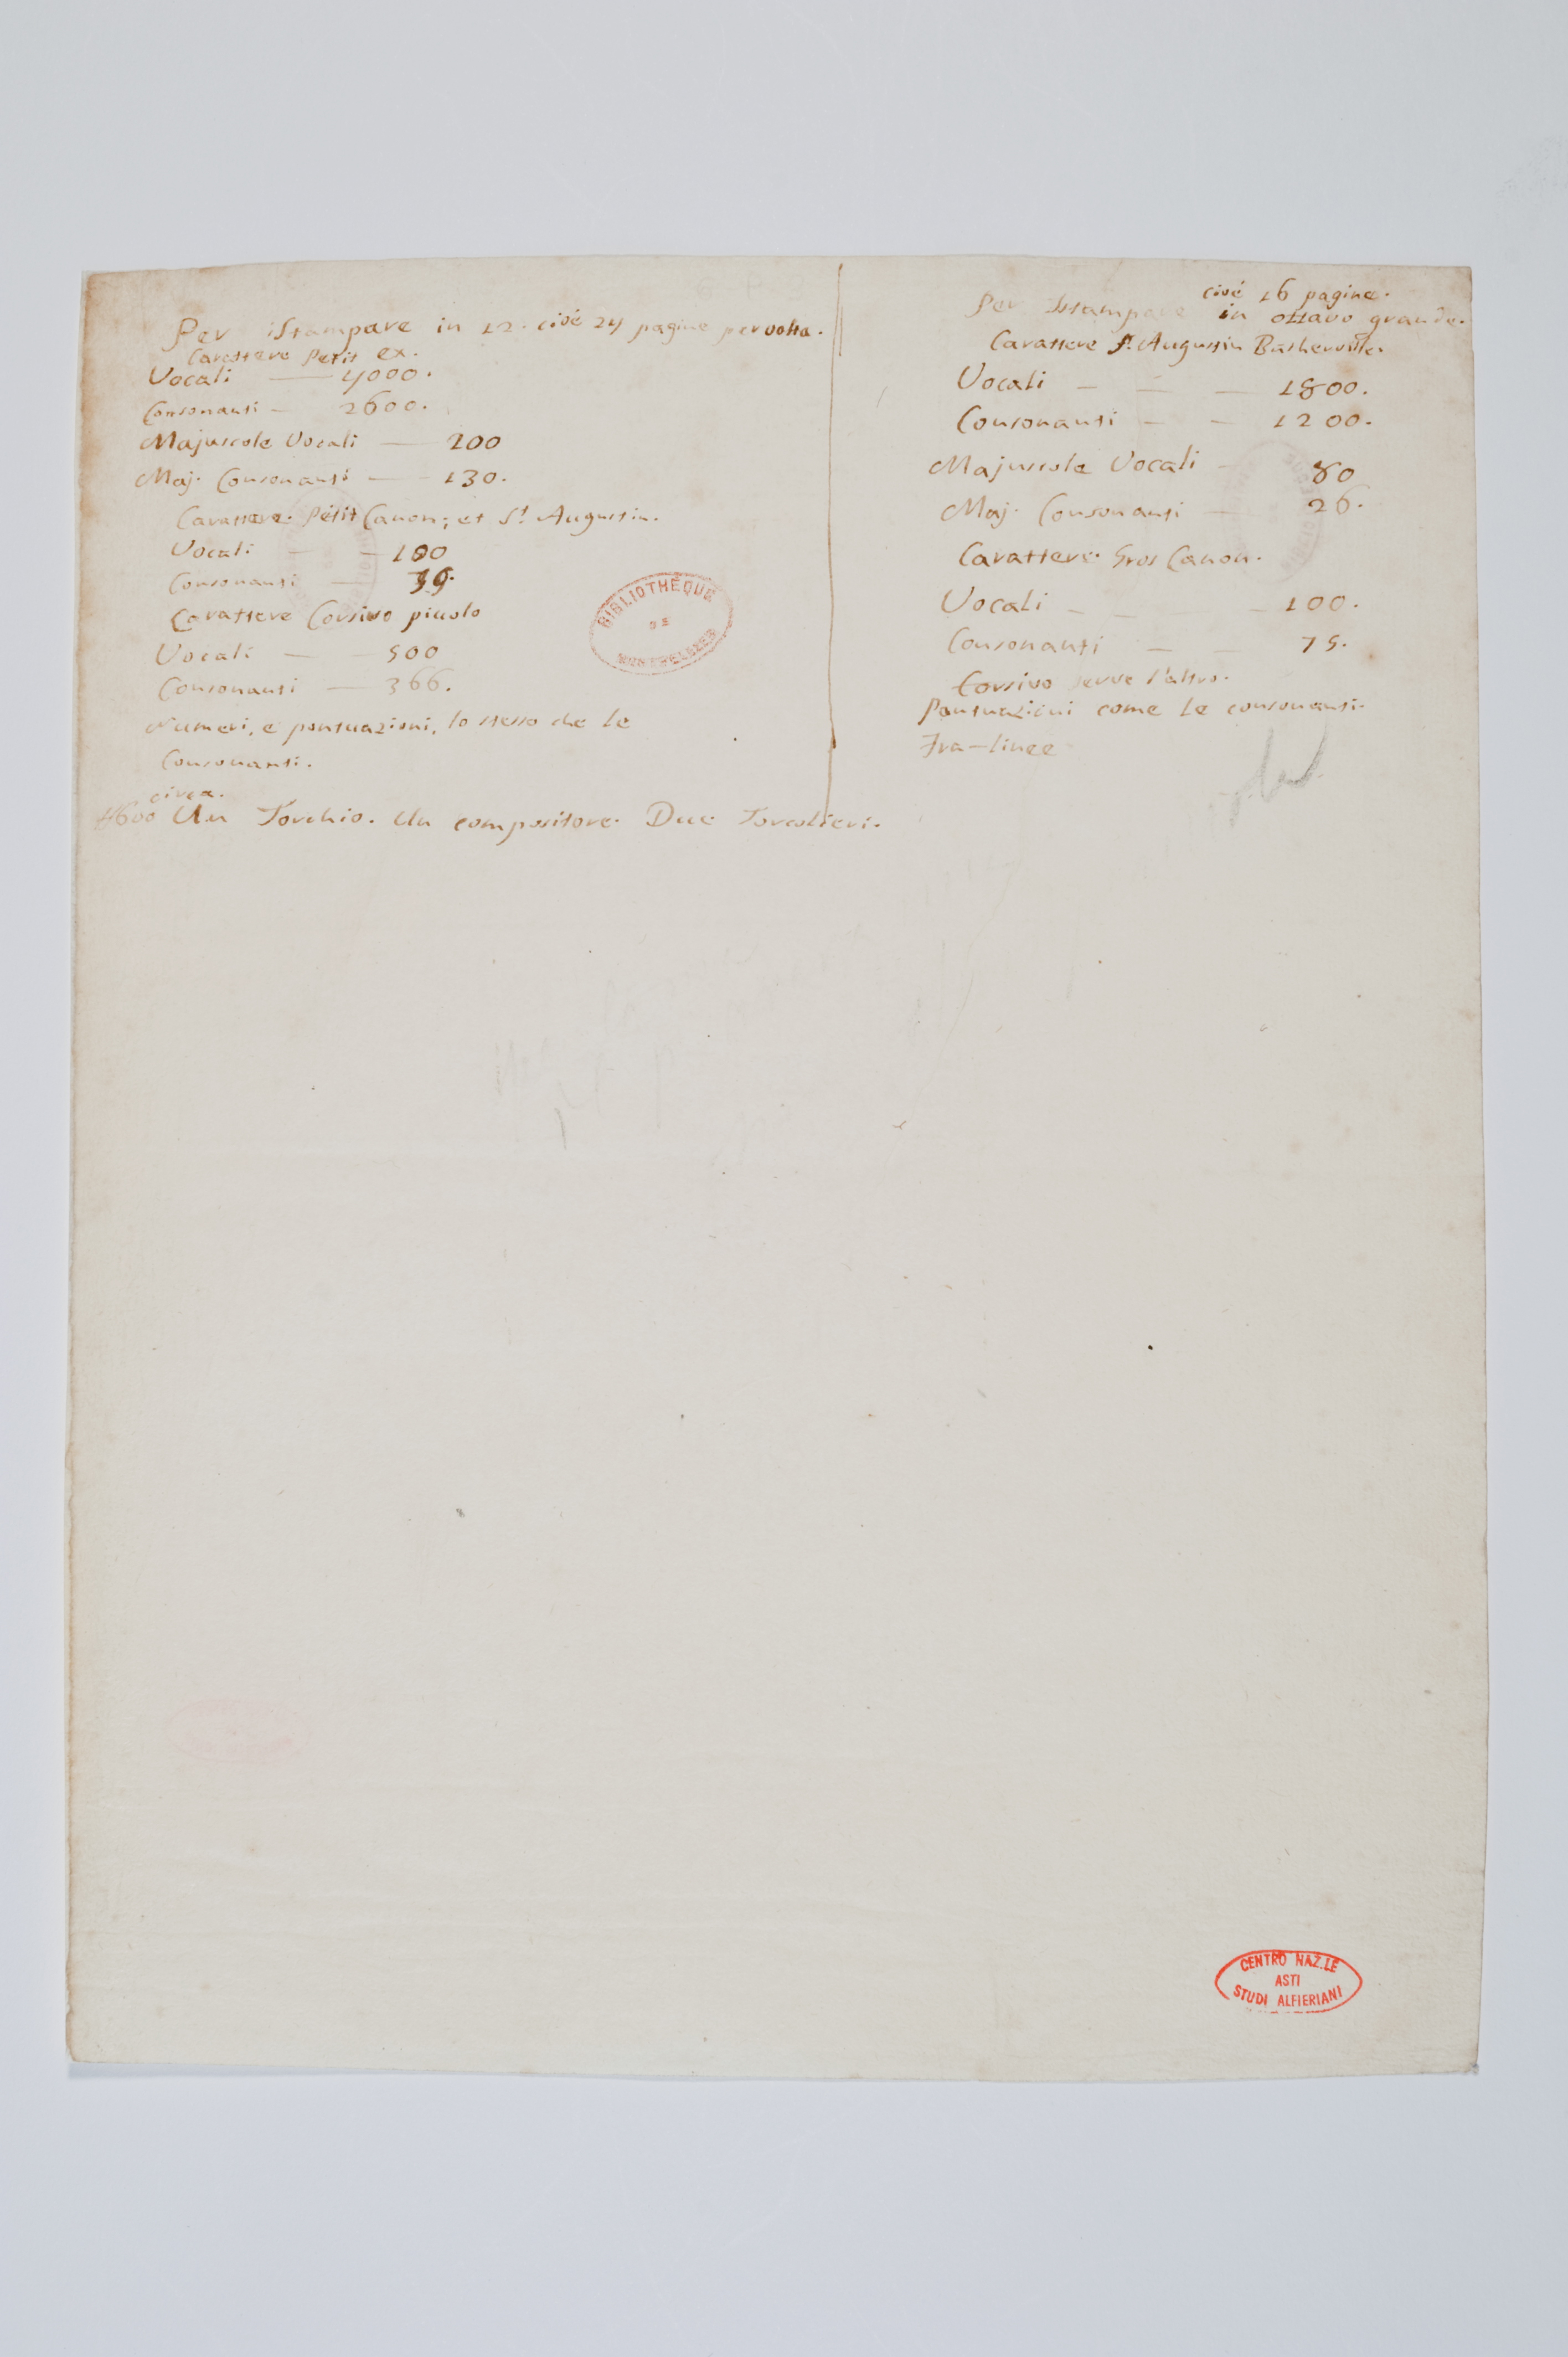 Per istampare in 12. cioè 24 pagine per volta.
Carattere Petit ex.
Vocali — 4000.
Consonanti — 2600.
Majuscole Vocali — 200
Maj. Consonanti — 130.
Carattere Petit Canon; et St. Augustin.
Vocali — — 100
Consonanti — 39.
Carattere Corsivo piccolo
Vocali — — 500
Consonanti — 366.
Numeri, e pontuazioni, lo stesso che le
Consonanti.
circa.
Un Torchio. Un compositore. Due Torcolieri.
cioè 16 pagine.
Per istampare in ottavo grande.
Carattere St. Augustin Baskerville.
Vocali — — — 1800.
Consonanti — — 1200.
Majuscole Vocali — 80
Maj. Consonanti — 26.
Carattere Gros Canon.
Vocali — — — 100.
Consonanti — — 75.
Corsivo serve l'altro.
Pontuazioni come le consonanti.
Fra-linee
BIBLIOTHÈQUE
DE
MONTPELLIER
CENTRO NAZ.LE
ASTI
STUDI ALFIERIANI